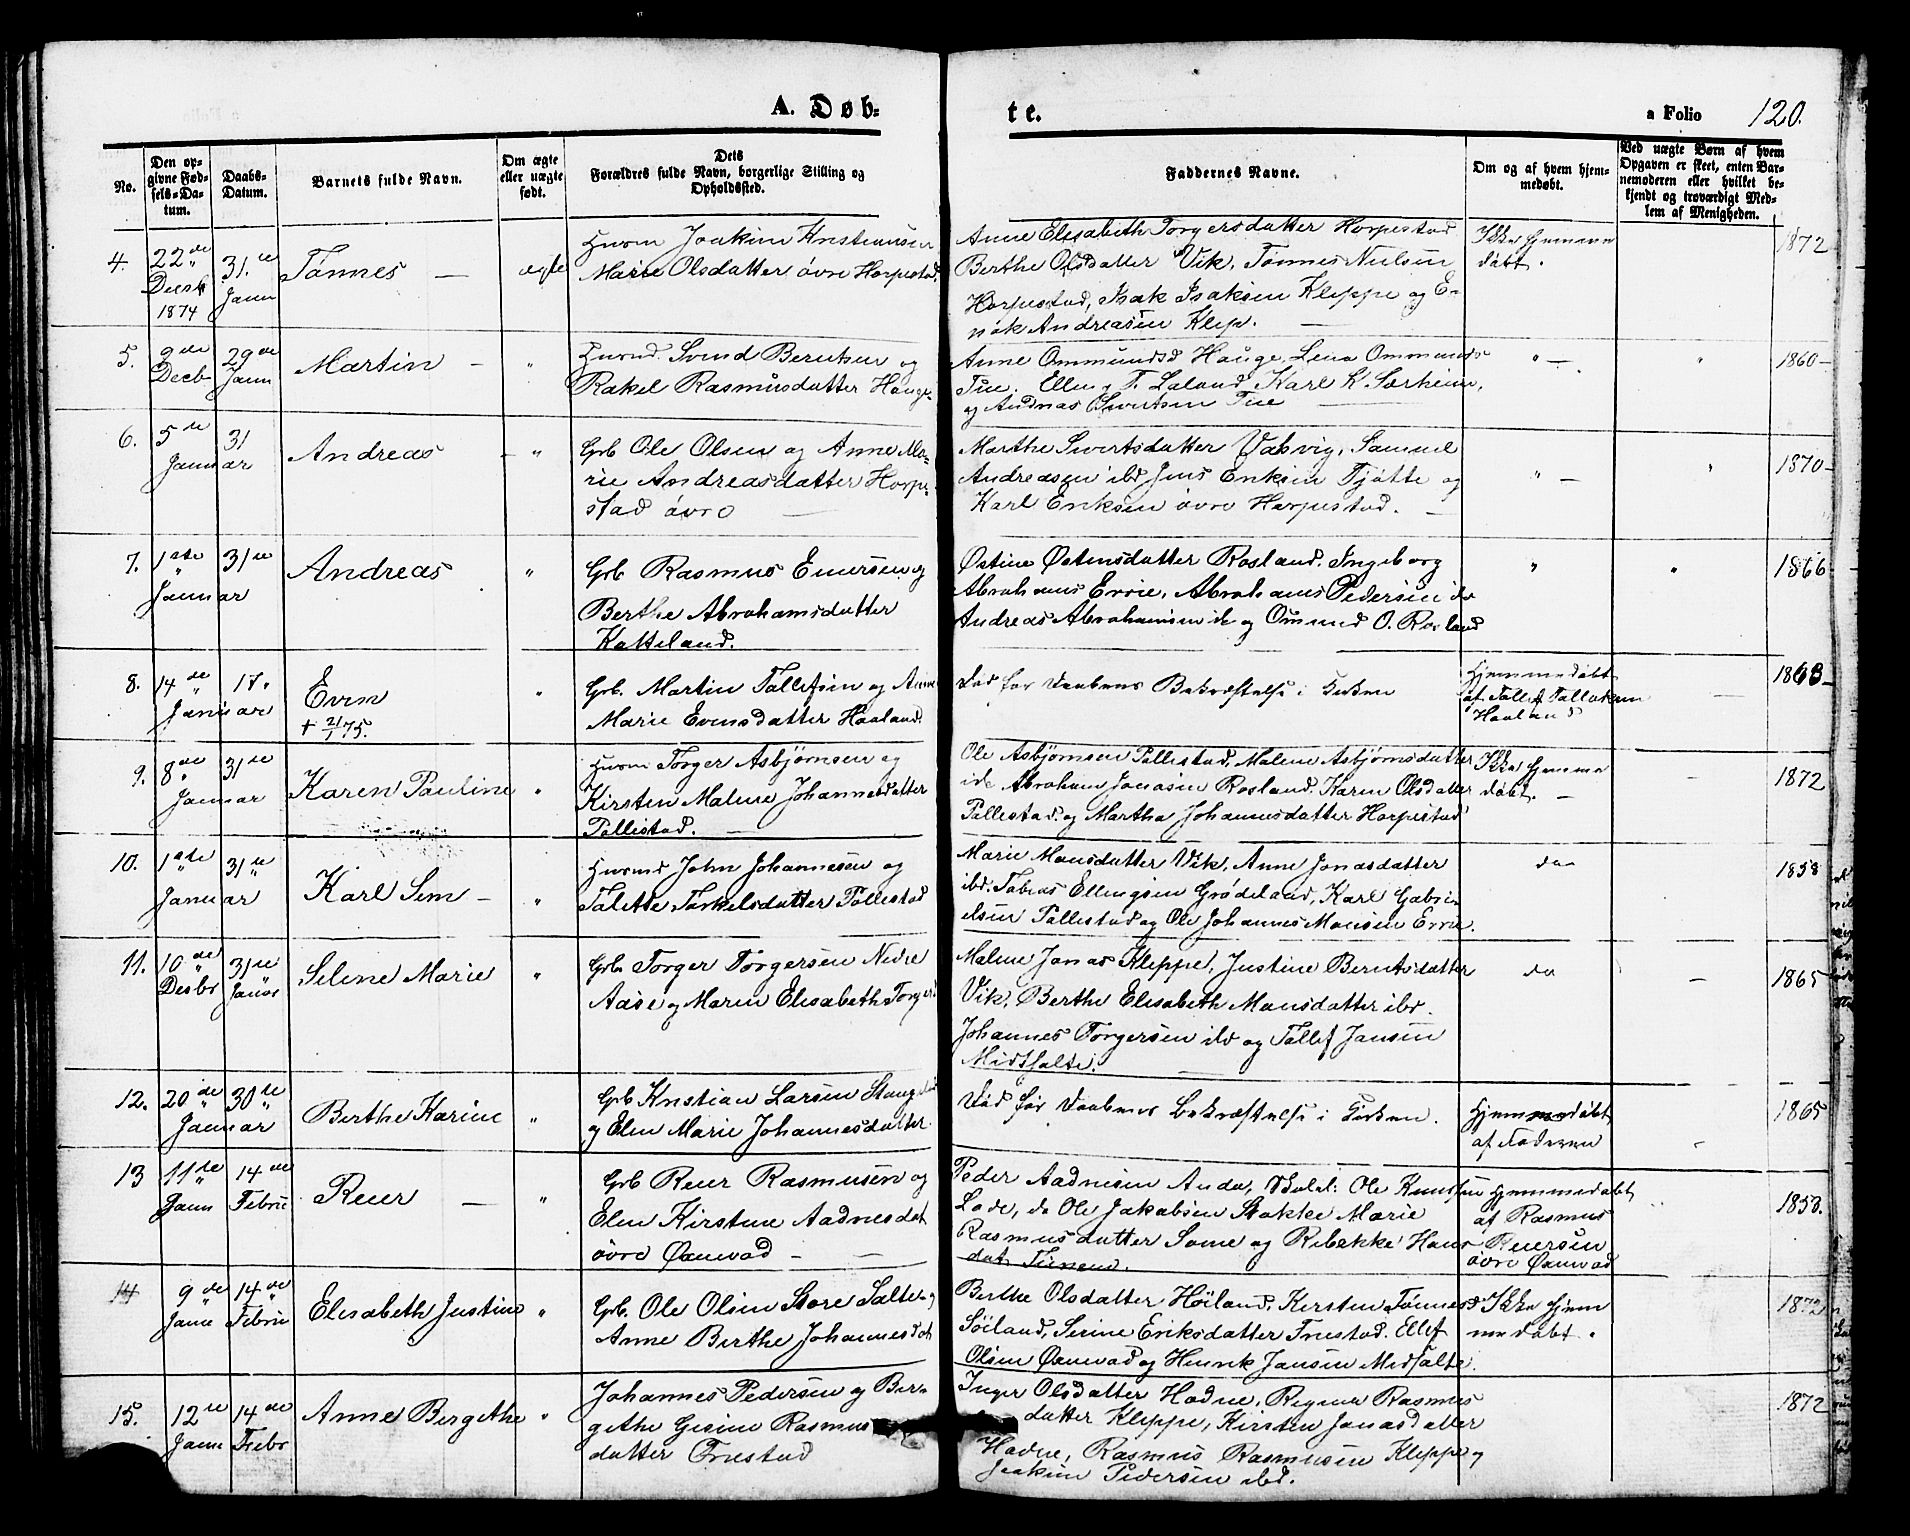 A. Døb=
te.
a Folio 120.
No.
Den op-
givne Fød-
sels-Da-
tum.
Daabs-
Datum.
Barnets fulde Navn.
Om ægte
eller uægte
født.
Dets
Forældres fulde Navn, borgerlige Stilling og
Opholdssted.
Faddernes Navne.
Om og af hvem hjem-
medøbt.
Ved uægte Børn af hvem
Opgaven er skeet, enten Bar-
nemoderen eller hvilket be-
kjendt og troværdigt Med-
lem af Menigheden.
4. 22de Decsb 1874
31.te Janu
Tønnes —
ægte
Husm Joakim Kristiansen
Marie Olsdatter øvre Horpestad.
Anne Elisabeth Torgersdatter Horpestad
Berthe Olsdatter Vik, Tønnes Nielsen
Horpestad, Isak Isaksen Kleppe og E-
nok Andreasen Klep. —
Ikke hjemme
døbt.
1872
5. 9de Decb
29de Janu
Martin —
"
Husmd. Svend Berntsen og
Rakel Rasmusdatter Hauge
Anne Ommundsd Hauge, Lena Ommunds
Tue. Ellen T. Laland, Karl K. Særheim,
og Audnas Sivertsen Tue
" —
"
1860 —
6. 5te Januar
31
Andreas
— "
Grb Ole Olsen og Anne Ma-
rie Andreasdatter Horpe-
stad øvre —
Marthe Sivertsdatter Vabvig, Samuel
Andreasen ibd Jens Eriksen Tjøtte og
Karl Eriksen øvre Horpestad. —
" —
"
1870 —
7. 1ste Januar
31te
Andreas
"
Grb Rasmus Einersen og
Berthe Abrahamsdatter
Katteland.
Østine Østensdatter Rosland. Ingeborg
Abrahams Ervie, Abrahams Pedersen ibd
Andreas Abrahamsen ib og Omund O. Rosland
"
"
1866 —
8. 14de Januar
17.
Even
+ 21/1 75.
"
Grb. Martin Tallefsen og Anne
Marie Evensdatter Haaland.
Død før Daabens Bekræftelse i Kirken
Hjemmedøbt
af Tallef Tallaksen
Haaland
—
1868 —
9. 8de Januar
31te
Karen Pauline
"
Husm Torger Asbjørnsen og
Kirsten Malene Johannesdatter
Pollestad. —
Ole Asbjørnsen Pollestad. Malene Asbjørnsdatter
ibd. Abraham Jonasen Rosland. Karen Olsdatter
Pollestad og Martha Johannesdatter Horpestad
Ikke hjemme
døbt. —
—
1872
10. 1ste Januar
31te
Karl Sem —
"
Husmd John Johannesen og
Talette Torkelsdatter Pollestad
Marie Mansdatter Vik, Anne Jonasdatter
ibd. Tobias Ellingsen Grødeland, Karl Gabri-
elsen Pollestad og Ole Johannes Monsen Ervie.
do
1858
11. 10de Desbr
31te Januar
Seline Marie
"
Grb. Torger Torgersen Nedre
Aase og Maren Elisabeth Torgersd
Malene Jonas Kleppe, Justine Berntsdatter
Vik, Berthe Elisabeth Mansdatter ibd.
Johannes Torgersen ibd og Tollef Jansen
Midtsalte.
do
—
1865
12. 20de Januar
30te
Berthe Karine
"
Grb Kristian Larsen Stangeland
og Elen Marie Johannesdatter.
Død før Daabens Bekræftelse i Kirken.
Hjemmedøbt
af Faderen
—
1865
13 11te Janu
14de Febru
Reier —
"
Grb Reier Rasmusen og
Elen Kirstine Aadnesdat
øvre Øxnevad —
Peder Aadnesen Anda, Ole Knutsen
Lode, do Ole Jakobsen Stokke Marie
Rasmusdatter Some og Ribekke Hans
dat
Hjemmedøbt
af Rasmus
Reiersen
øvre Øxnevad
1858.
14 9de Janu
14de Febru
Elisabeth Justine
"
Grb. Ole Olsen Store Salte og
Anne Berthe Johannesdat
Berthe Olsdatter Høiland, Kirsten Tønnesd
Søiland, Serine Eriksdatter Friestad. Ellef
Olsen Øxnevad og Henrik Jansen Midsalte.
Ikke hjem
medøbt.
1872
15. 12te Janu
14de Febr
Anne Bergithe
"
Johannes Pedersen og Ber-
githe Gesine Rasmus
datter Friestad
Inger Olsdatter Hodne, Regina Rasmus
datter Kleppe, Kirsten Jonasdatter
Hodne, Rasmus Rasmusen Kleppe og
Joakim Pedersen ibd.
1872